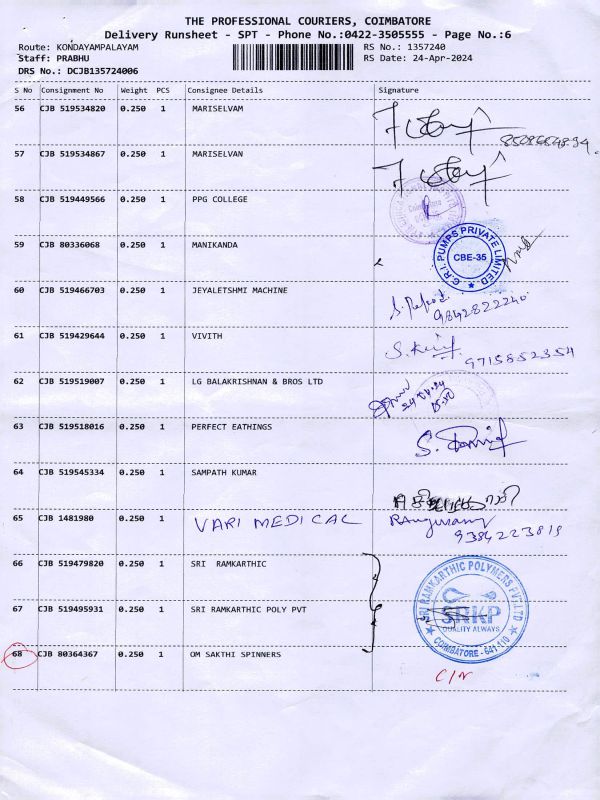 THE PROFESSIONAL COURIERS, COIMBATORE
Delivery Runsheet - SPT - Phone No.:0422-3505555 - Page No.:6
Route: KONDAYAMPALAYAM RS No.: 1357240
Staff: PRABHU RS Date: 24-Apr-2024
DRS No.: DCJB135724006
S No Consignment No Weight PCS Consignee Details Signature
56 CJB 519534820 0.250 1 MARISELVAM
57 CJB 519534867 0.250 1 MARISELVAN
58 CJB 519449566 0.250 1 PPG COLLEGE
59 CJB 80336068 0.250 1 MANIKANDA
C.R.I. PUMPS PRIVATE LIMITED
CBE-35
60 CJB 519466703 0.250 1 JEYALETSHMI MACHINE
9842822240
61 CJB 519429644 0.250 1 VIVITH
9715852354
62 CJB 519519007 0.250 1 LG BALAKRISHNAN & BROS LTD
24 04 24
63 CJB 519518016 0.250 1 PERFECT EATHINGS
64 CJB 519545334 0.250 1 SAMPATH KUMAR
65 CJB 1481980 0.250 1 VARI MEDICAL
9384223819
66 CJB 519479820 0.250 1 SRI RAMKARTHIC
67 CJB 519495931 0.250 1 SRI RAMKARTHIC POLY PVT
SRI RAMKARTHIC POLYMERS PVT.LTD
SRKP
QUALITY ALWAYS
COIMBATORE - 641 110
68 CJB 80364367 0.250 1 OM SAKTHI SPINNERS
C/N